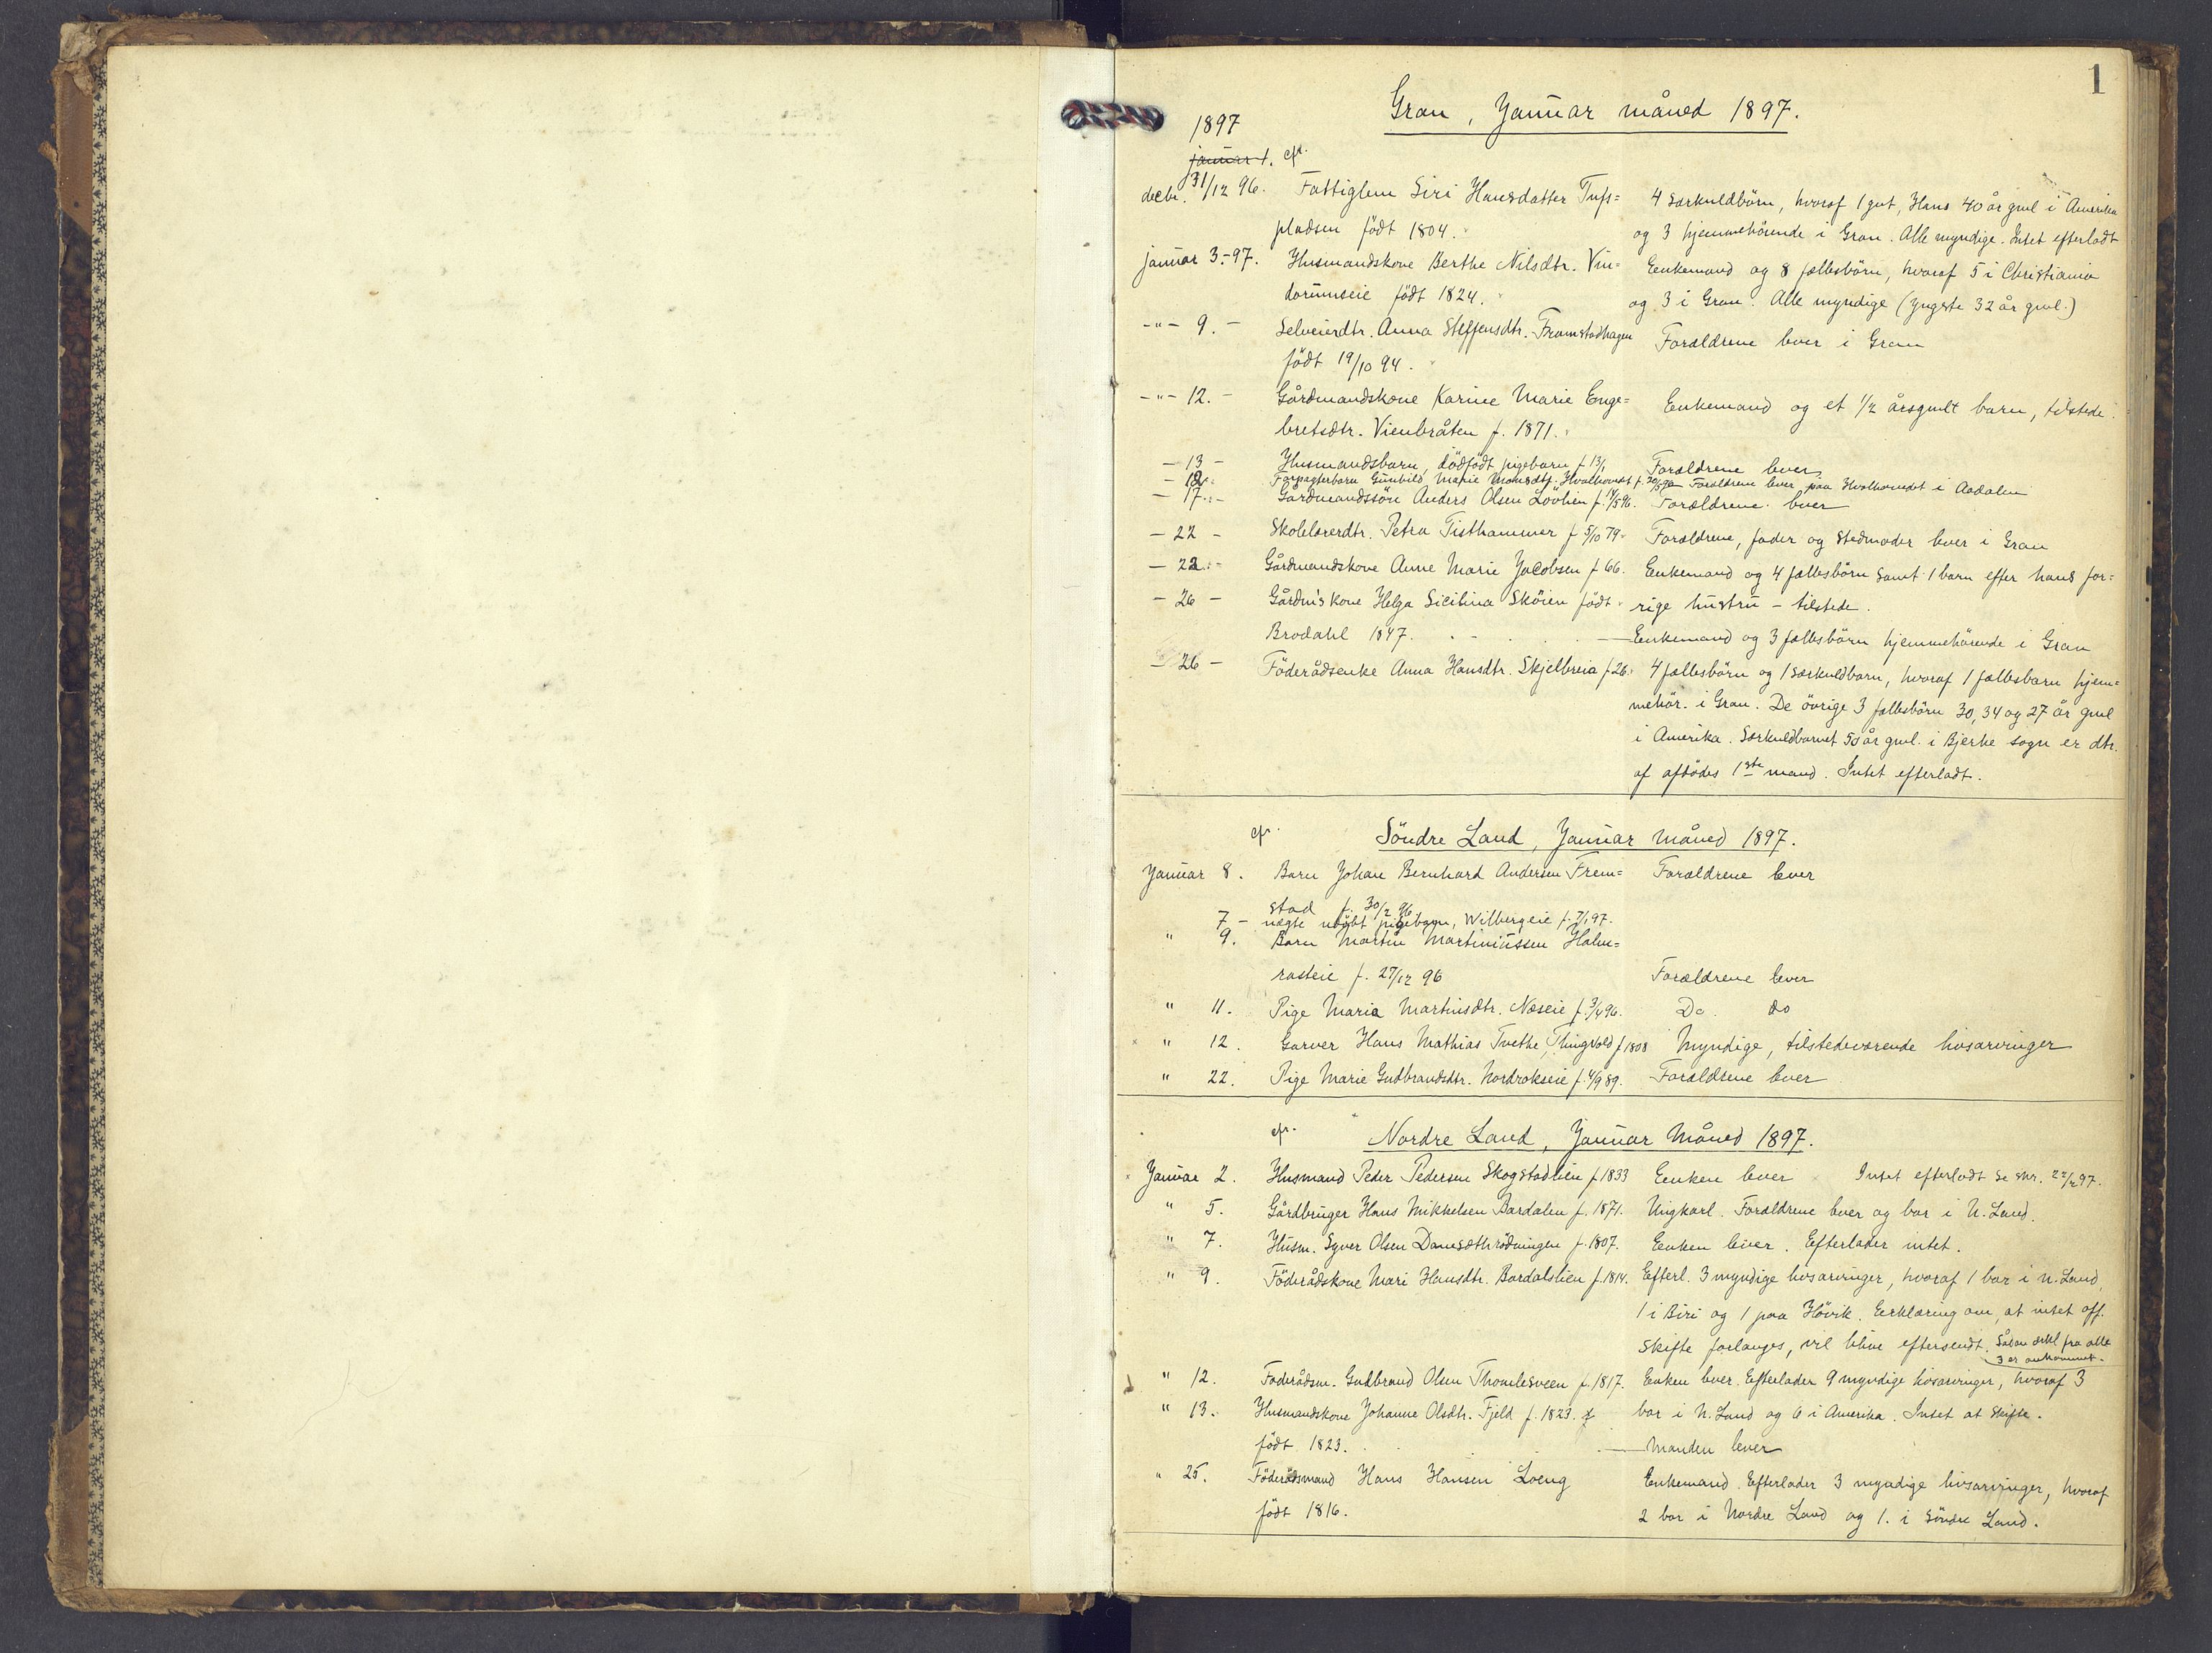 1
Gran, Januar måned 1897.
1897
januar 1. efr.
decbr. 31/12 96. Fattiglem Siri Hansdatter Tufs= 4 særkuldbörn, hvoraf 1 gut, Hans 40 år gml i Amerika
pladsen födt 1804. og 3 hjemmehörende i Gran. Alle myndige. Intet efterladt
januar 3.-97. Husmandskone Berthe Nilsdtr. Vin= Enkemand og 8 fællesbörn, hvoraf 5 i Christiania
dorumseie födt 1824. og 3 i Gran. Alle myndige (yngste 32 år gml.)
-"- 9. - Selveierdtr. Anna Steffensdtr. Framstadhagen Forældrene lever i Gran
födt 19/10 94.
-"- 12. - Gårdmandskone Karine Marie Enge= Enkemand og et 1/2 årsgmlt barn, tilstede.
bretsdtr. Vienbråten f. 1871.
- 13 - Husmandsbarn, dödfödt pigebarn f 13/1 Forældrene lever
- 12. Forpagterbarn Gunhild Marie Monsdtr. Hvalhovdet f. Forældrene lever paa Hvalhovedet i Aadalen
- 17. - Gårdmandssön Anders Olsen Lövlien f. 14/5 96. Forældrene lever
- 22 - Skolelærerdtr. Petra Tisthammer f 5/10 79. Forældrene, fader og stedmoder lever i Gran
- 22. - Gårdmandskone Anne Marie Jacobsen f 66. Enkemand og 4 fællesbörn samt 1 barn efter hans for=
- 26 - Gårdm's kone Helga Sicilina Sköien födt rige hustru - tilstede.
Brodahl 1847. Enkemand og 3 fællesbörn hjemmehörende i Gran
- 26 - Föderådsenke Anna Hansdtr. Skjelbreia f. 26. 4 fællesbörn og 1 særkuldbarn, hvoraf 1 fællesbarn hjem=
mehör. i Gran. De övrige 3 fællesbörn 30, 34 og 27 år gml
i Amerika. Særkuldbarnet 50 år gml. i Bjerke sogn er dtr.
af afdödes 1ste mand. Intet efterladt.
efr. Söndre Land, Januar måned 1897.
Januar 8. Barn Johan Bernhard Andersen Frem= Forældrene lever
stad f. 30/12 96
7 - uægte udöbt pigebarn, Wilbergeie f. 7/1 97.
" 9. Barn Martin Martiniussen Halm=
rasteie f. 27/12 96 Forældrene lever
" 11. Pige Maria Martinsdtr. Næseie f. 3/4 96. Do. do
" 12. Garver Hans Mathias Tvethe, Thingvold f 1808 Myndige, tilstedeværende livsarvinger
" 22. Pige Marie Gudbrandsdtr. Nordrakseie f. 4/9 89. Forældrene lever
efr. Nordre Land, Januar Måned 1897.
Januar 2. Husmand Peder Pedersen Skogstadlien f 1833 Enken lever Intet efterladt se skr. 22/2 97.
" 5. Gårdbruger Hans Mikkelsen Bardalen f. 1871. Ungkarl. Forældrene lever og bor i N. Land.
" 7. Husm. Syver Olsen f. 1807. Enken lever. Efterlader intet.
" 9. Föderådskone Mari Hansdtr. Bardalslien f. 1814. Efterl. 3 myndige livsarvinger, hvoraf 1 bor i N. Land,
1 i Biri og 1 paa Hövik. Erklæring om, at intet off.
skifte forlanges, vil blive eftersendt. Sådan erkl fra alle
3 er ankommet.
" 12. Föderådsm. Gudbrand Olsen Thomlesveen f. 1817. Enken lever. Efterlader 9 myndige livsarvinger, hvoraf 3
" 13. Husmandskone Johanne Olsdtr. Fjeld f. 1823. bor i N. Land og 6 i Amerika. Intet at skifte.
födt 1823. Manden lever
" 25. Föderådsmand Hans Hansen Loeng Enkemand. Efterlader 3 myndige livsarvinger, hvoraf
födt 1816. 2 bor i Nordre Land og 1. i Söndre Land.